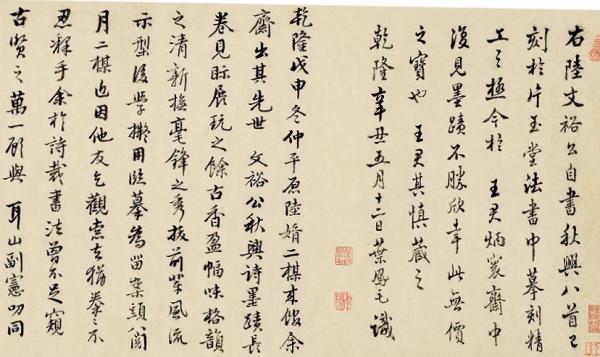 右陸文裕公自書秋興八首已
刻於片玉堂法書中摹刻精
工之極今於 王君炳裳齋中
復見墨蹟不勝欣幸此無價
之寶也 王君其慎藏之
乾隆辛丑五月十二日葉鳳毛識
乾隆戊申冬仲平原陸婿二楳來館余
齋出其先世 文裕公秋興詩墨蹟長
卷見眎展玩之餘古香盈幅味格韻
之清新挹毫鋒之秀拔前輩風流
示型後學擬用臨摹為留案頭閱
月二楳迫因他友乞觀索去猶拳拳不
忍釋手余於詩書法曾不足窺
古賢之萬一顧與 耳山副憲叨同